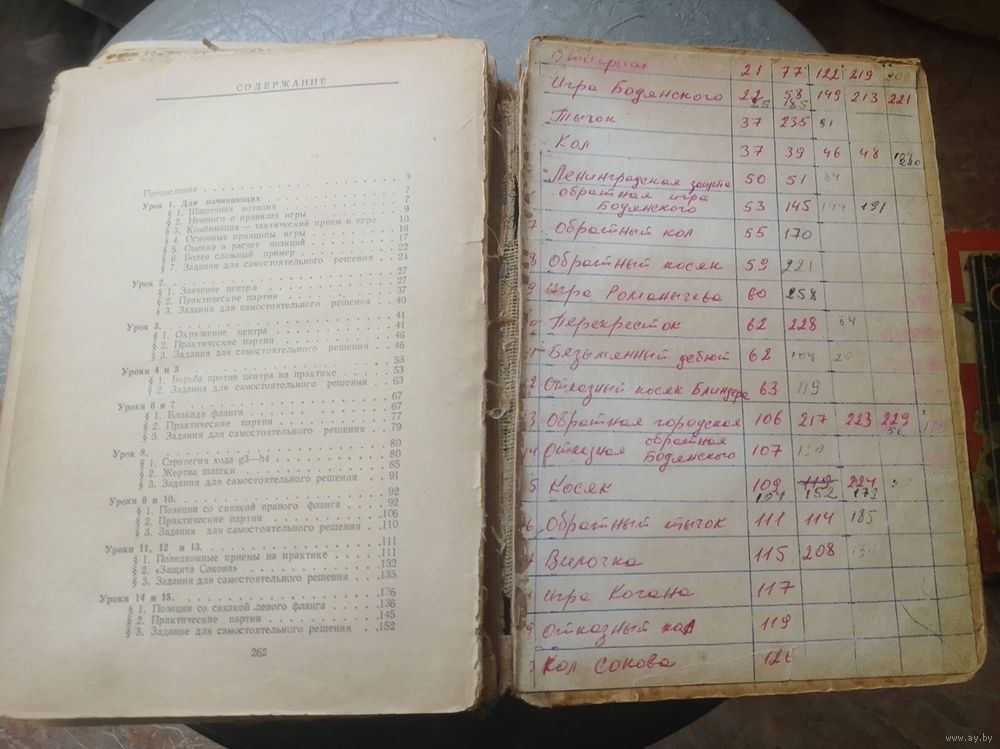 СОДЕРЖАНИЕ
Предисловие 3
Урок 1. Для начинающих 7
§ 1. Шашечная нотация 7
§ 2. Немного о правилах игры 9
§ 3. Комбинация — тактический прием в игре 10
§ 4. Основные принципы игры 16
§ 5. Оценка и расчет позиций 17
§ 6. Более сложный пример 22
§ 7. Задания для самостоятельного решения 24
Урок 2. 27
§ 1. Значение центра 27
§ 2. Практические партии 37
§ 3. Задания для самостоятельного решения 40
Урок 3. 41
§ 1. Окружение центра 41
§ 2. Практические партии 46
§ 3. Задания для самостоятельного решения 46
Уроки 4 и 5 53
§ 1. Борьба против центра на практике 53
§ 2. Задания для самостоятельного решения 63
Уроки 6 и 7 67
§ 1. Блокада фланга 67
§ 2. Практические партии 77
§ 3. Задания для самостоятельного решения 79
Урок 8. 80
§ 1. Стратегия хода g3—h4 80
§ 2. Жертва шашки 85
§ 3. Задания для самостоятельного решения 91
Уроки 9 и 10. 92
§ 1. Позиции со связкой правого фланга 92
§ 2. Практические партии 106
§ 3. Задания для самостоятельного решения 110
Уроки 11, 12 и 13. 111
§ 1. Позиционные приемы на практике 111
§ 2. «Защита Сокова» 132
§ 3. Задания для самостоятельного решения 135
Уроки 14 и 15. 136
§ 1. Позиции со связкой левого фланга 136
§ 2. Практические партии 145
§ 3. Задание для самостоятельного решения 152
262
Отыгрыш 21 77 122 219
Игра Бодянского 22 58 149 213 221
25 185
Тычок 37 235 91
Кол 37 39 46 48
Ленинградская защита 50 51 84
обратная игра
Бодянского 53 145 144 191
7 Обратный кол 55 170
8 Обратный косяк 59 221
9 Игра Романычева 60 258
Перекресток 62 228 84
Безымянный дебют 62 104
2 Отказный косяк Блиндера 63 119
3 Обратная городская 106 217 223 229
56
14 Отказная обратная
Бодянского 107
5 Косяк 109 119 224
104 152 173
6 Обратный тычок 111 114 185
Вилочка 115 208
Игра Когана 117
9 Отказный кол 119
Кол Сокова 126
www.ay.by